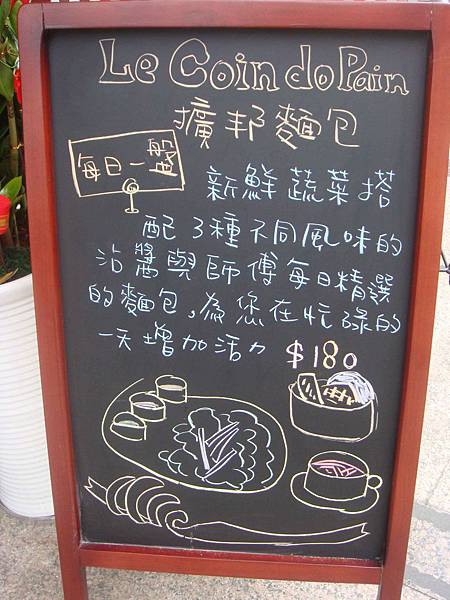 Le Coin do Pain
擴邦麵包
每日一盤
新鮮蔬菜搭
配3種不同風味的
沾醬與師傅每日精選
的麵包,為您在忙碌的
一天增加活力 $180